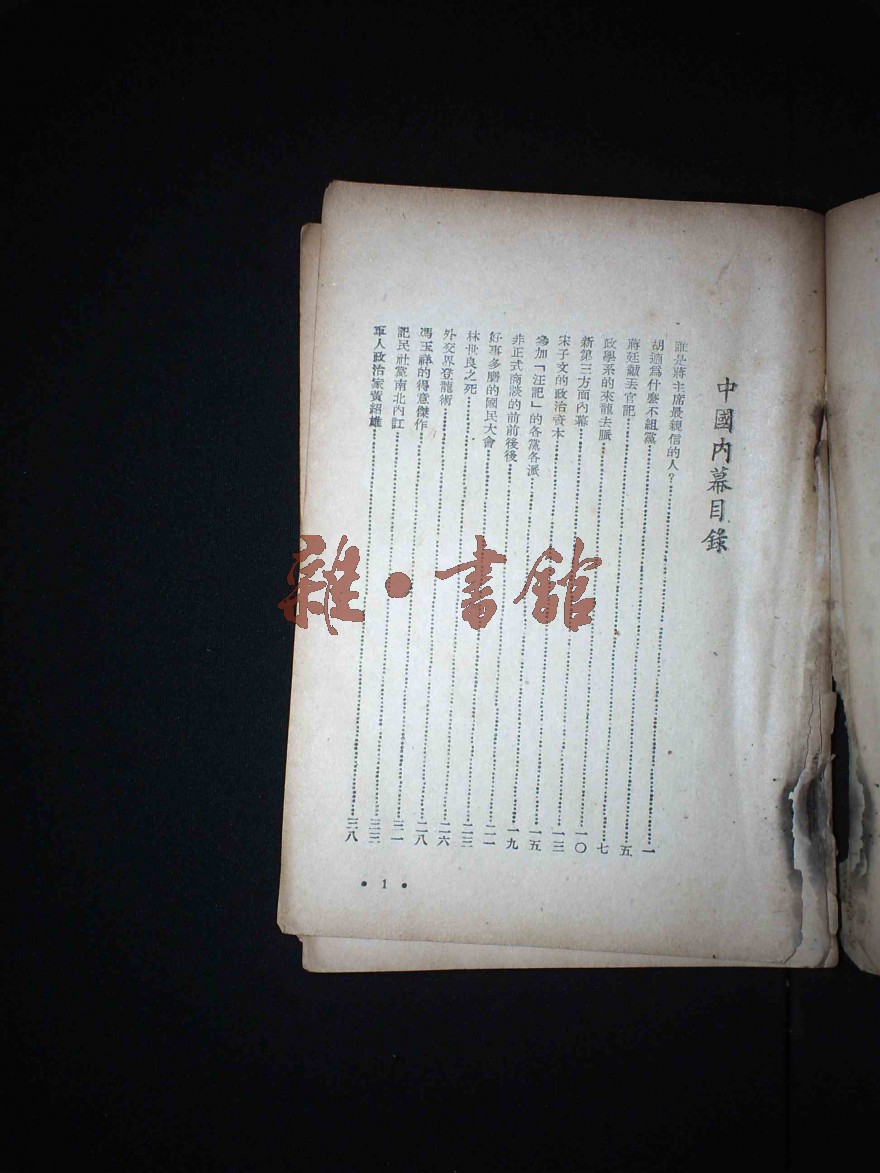 中國內幕目錄
誰是蔣主席最親信的人?……一
胡適為什麼不組黨……五
蔣廷黻丟官記……七
政學系的來龍去脈……一〇
新第三方面內幕……一三
宋子文的政治資本……一五
參加「汪記」的各黨各派……一九
非正式商談的前前後後……二一
好事多磨的國民大會……二三
林世良之死……二六
外交界登龍術……二八
馮玉祥的得意傑作……三一
記民社黨南北內訌……三三
軍人政治家黃紹雄……三八
• 1 •
雜•書館